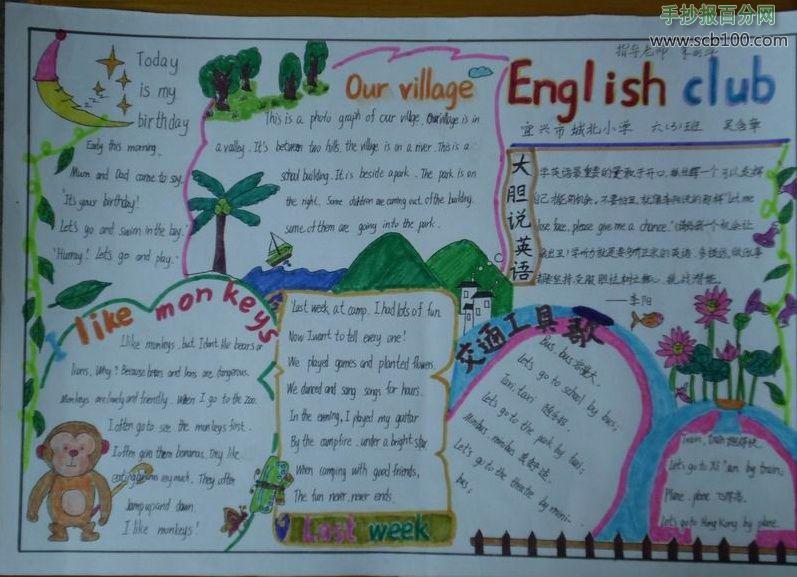 手抄报百分网
www.scb100.com
指导老师
English club
宜兴市城北小学 六(3)班
Today
is my
birthday
Early this morning,
Mum and Dad came to say.
"It's your birthday!
Let's go and swim in the bay."
"Hurray! Let's go and play."
Our village
This is a photo graph of our village. Our village is in
a valley. It's between two hills. the village is on a river. This is a
school building. It is beside a park. The park is on
the right. Some children are coming out of the building.
some of them are going into the park.
大胆说英语
"Let me
lose face, please give me a chance."
——李阳
I like monkeys
I like monkeys. but I don't like bears or
lions. Why? Because bears and lions are dangerous.
Monkeys are lovely and friendly. When I go to the zoo.
I often go to see the monkeys first.
I often give them bananas. They like
eating bananas very much. They often
jump up and down.
I like monkeys!
Last week at camp, I had lots of fun.
Now I want to tell every one!
We played games and planted flowers.
We danced and sang songs for hours.
In the evening, I played my guitar
By the campfire, under a bright star.
When camping with good friends,
The fun never never ends.
Last week
交通工具歌
Bus, bus
Let's go to school by bus;
Taxi, taxi
Let's go to the park by taxi;
Minibus minibus
Let's go to the theatre by mini-
bus;
Train, Train
Let's go to Xi'an by train;
Plane, plane
Let's go to Hong Kong by plane.